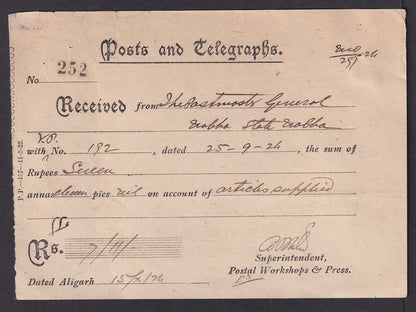 Posts and Telegraphs.
No. 252
25/ 26
Received from The Postmaster General
Nabha State Nabha
V.P.
with No. 192, dated 25-9-26, the sum of
Rupees Seven
annas eleven pies nil on account of articles supplied
Rs. 7/11/
Superintendent,
Postal Workshops & Press.
Dated Aligarh 15/